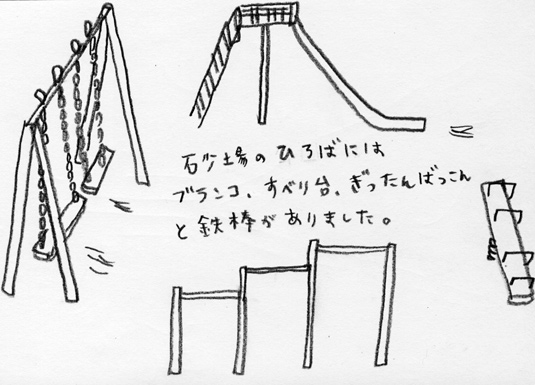 石少場のひろばには
ブランコ、すべり台、ぎったんばっこん
と鉄棒がありました。